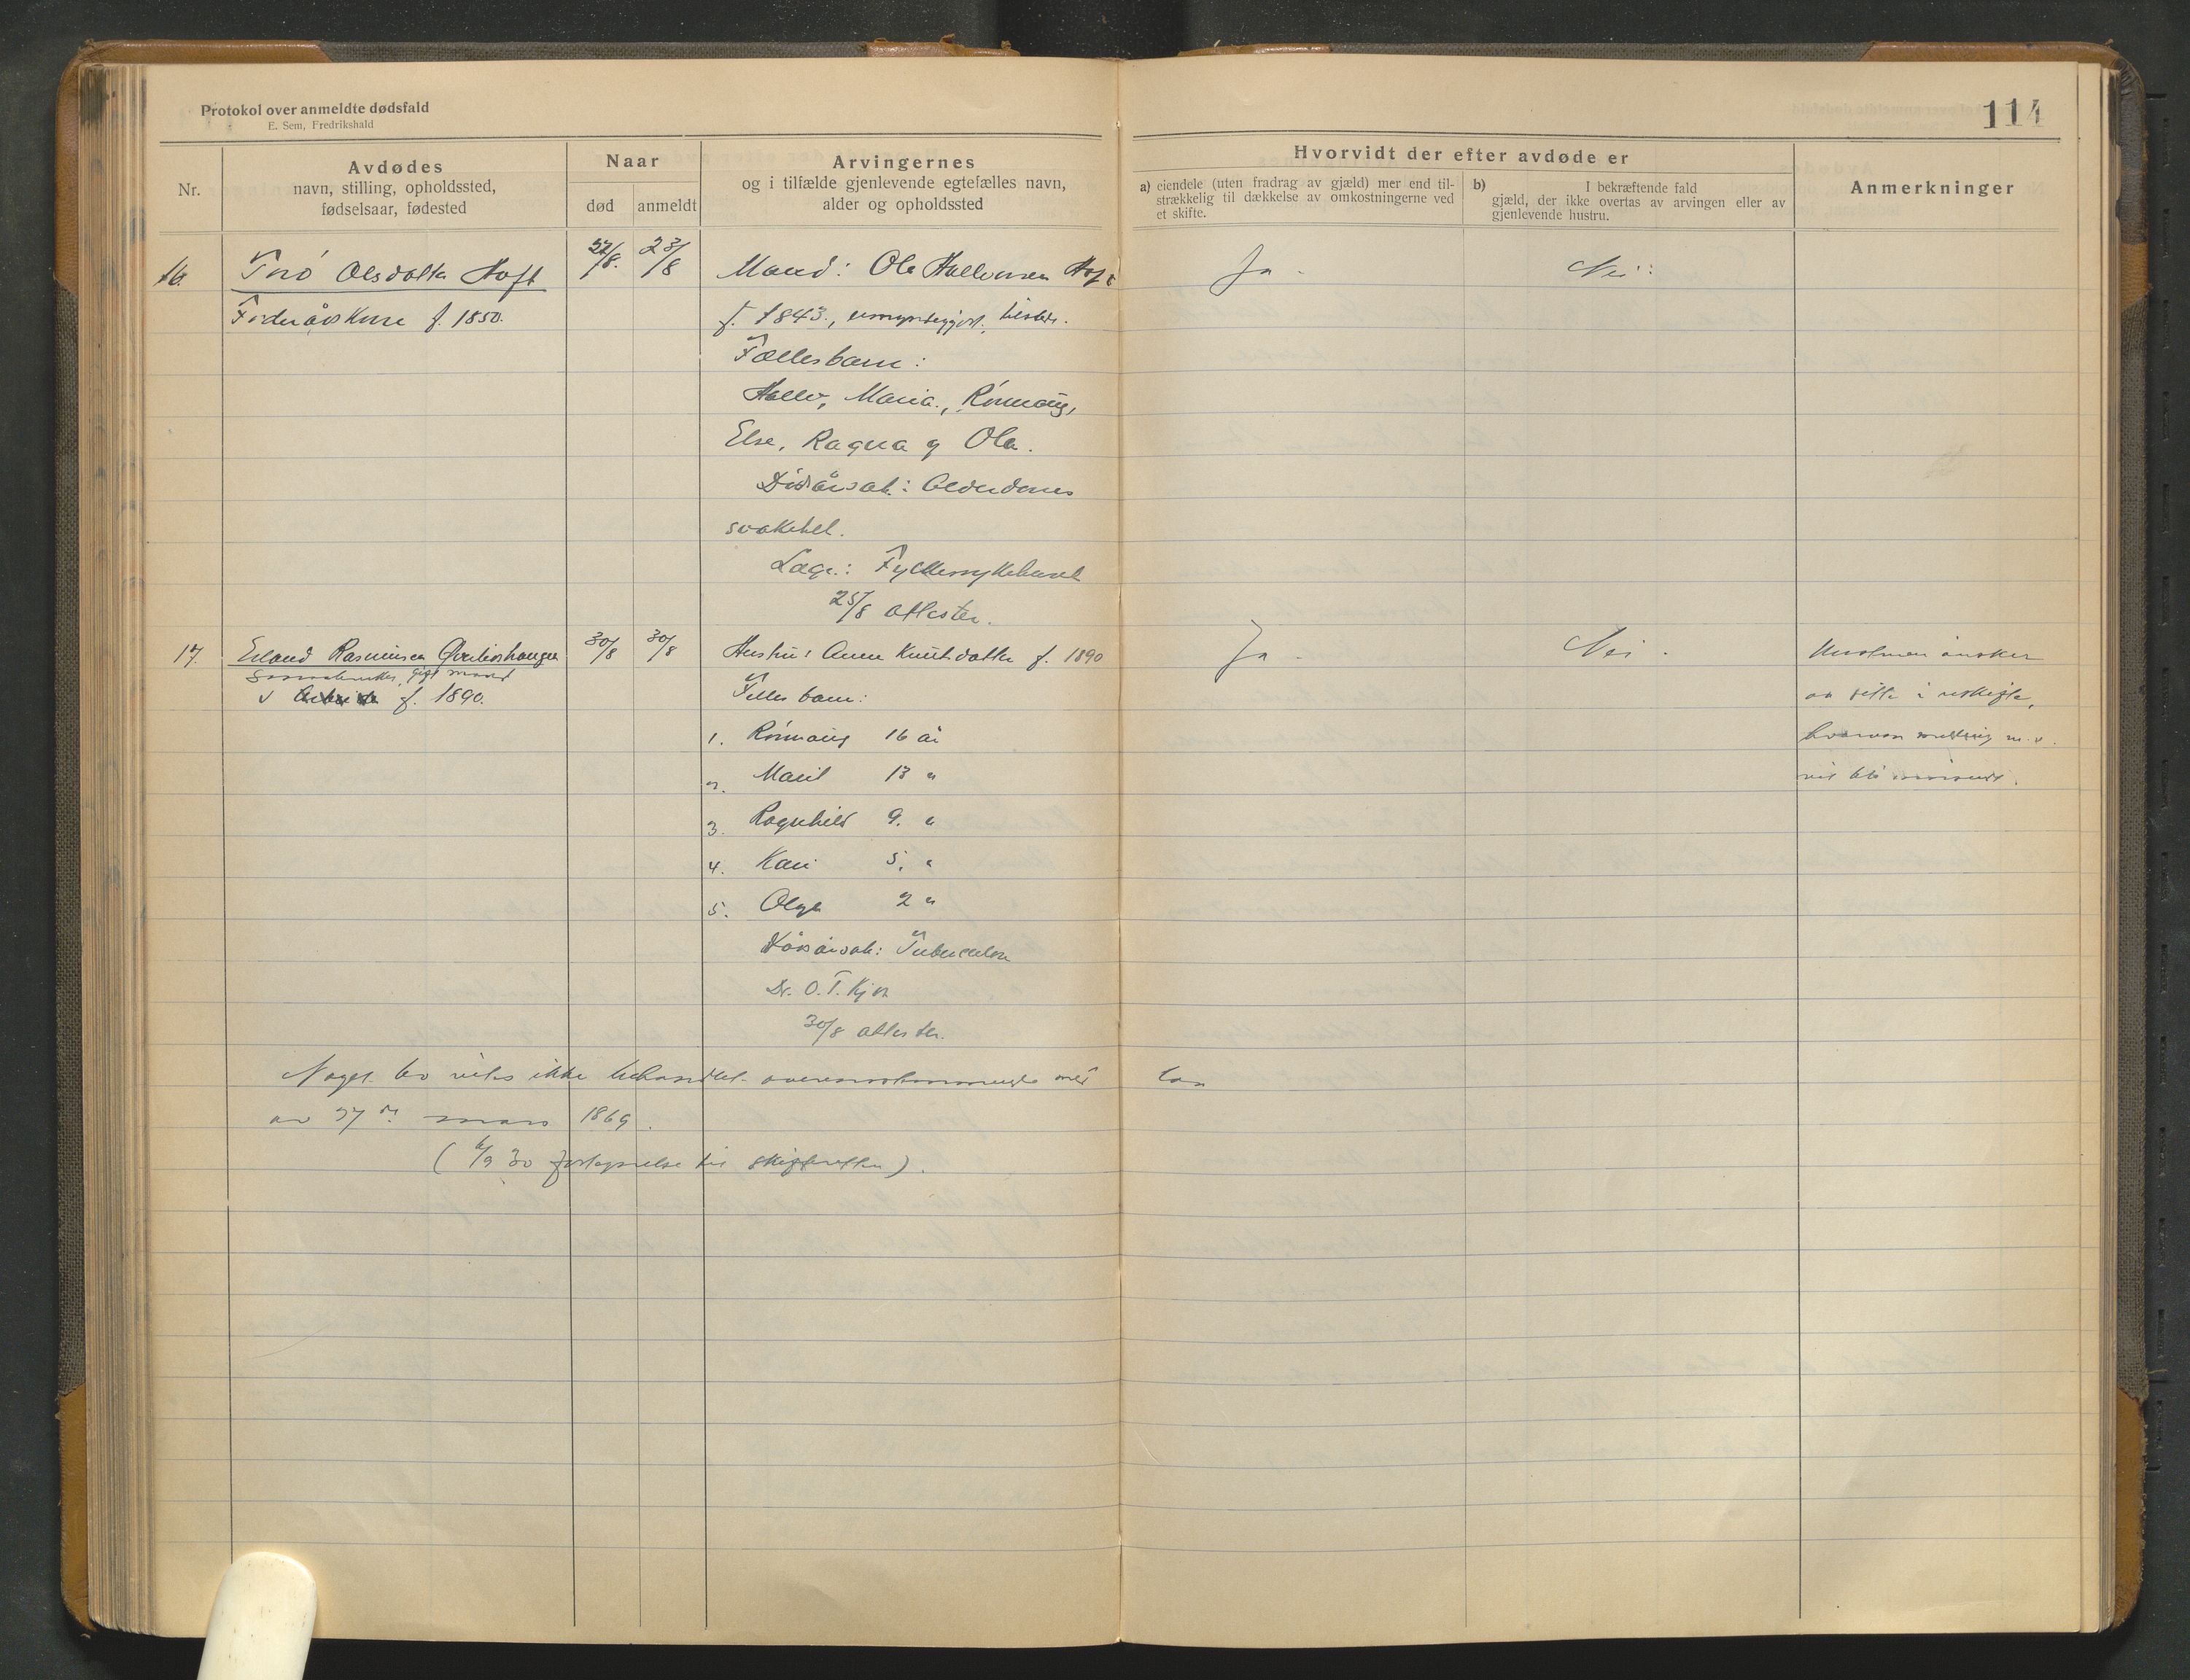 Protokol over anmeldte dødsfald
E. Sem, Fredrikshald
114
Nr.
Avdødes
navn, stilling, opholdssted,
fødselsaar, fødested
Naar
død
anmeldt
Arvingernes
og i tilfælde gjenlevende egtefælles navn,
alder og opholdssted
Hvorvidt der efter avdøde er
a) eiendele (uten fradrag av gjæld) mer end til-
strækkelig til dækkelse av omkostningerne ved
et skifte.
b) I bekræftende fald
gjæld, der ikke overtas av arvingen eller av
gjenlevende hustru.
Anmerkninger
16. Olsdatter Hoft 22/8. 23/8 Mand: Ola Hallvorsen Hoft Ja - Nei
Føderåds kone f. 1850. f. 1843., umyndiggjort,
Fællesbarn:
Hallv, Maria, Rønnaug,
Else, Ragna og Ola.
Dødsårsak: Alderdoms
svakhet.
Læge: Fylkessykehuset
25/8 attester.
17. Erland Rasmusen 30/8 30/8 Hustru: Anne Knutsdatter f. 1890 Ja - Nei - ønsker
gift mand
f. 1890. Felles barn: at sitte i uskifte,
1. Rønnaug 16 år
2. Marit 13 "
3. Ragnhild 9. "
4. Kari 5. "
5. Olga 2 "
Dødsårsak: Tuberculose
Dr. O. T.
30/8 attester.
Noget bo ikke behandlet overensstemmende med lov
av 27de mars 1869.
(6/9 30 til skifteretten).